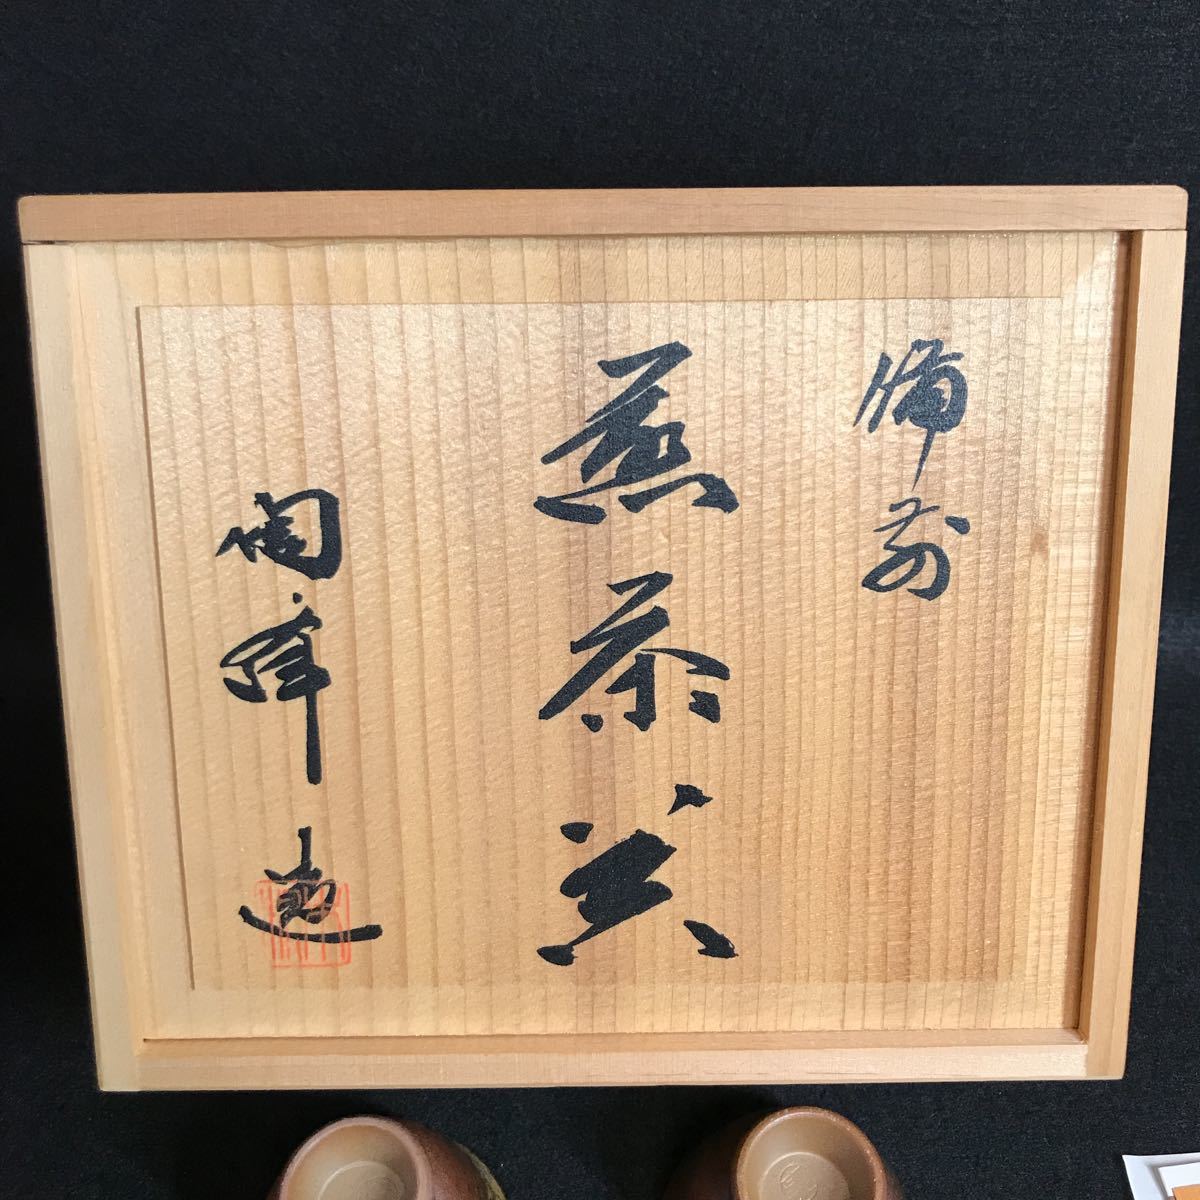 備前
煎茶器
陶峰造